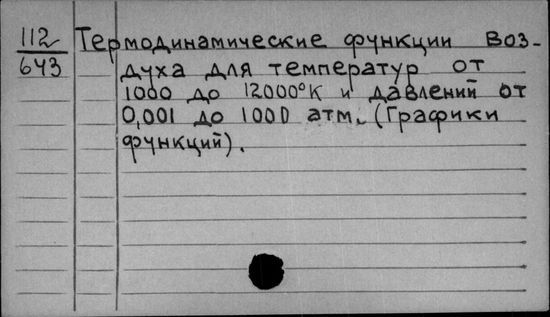 112 Термодинамические функции воз-
643 духа для температур от
1000 до 12000°К и давлений от
0,001 до 1000 атм. (Графики
функций).